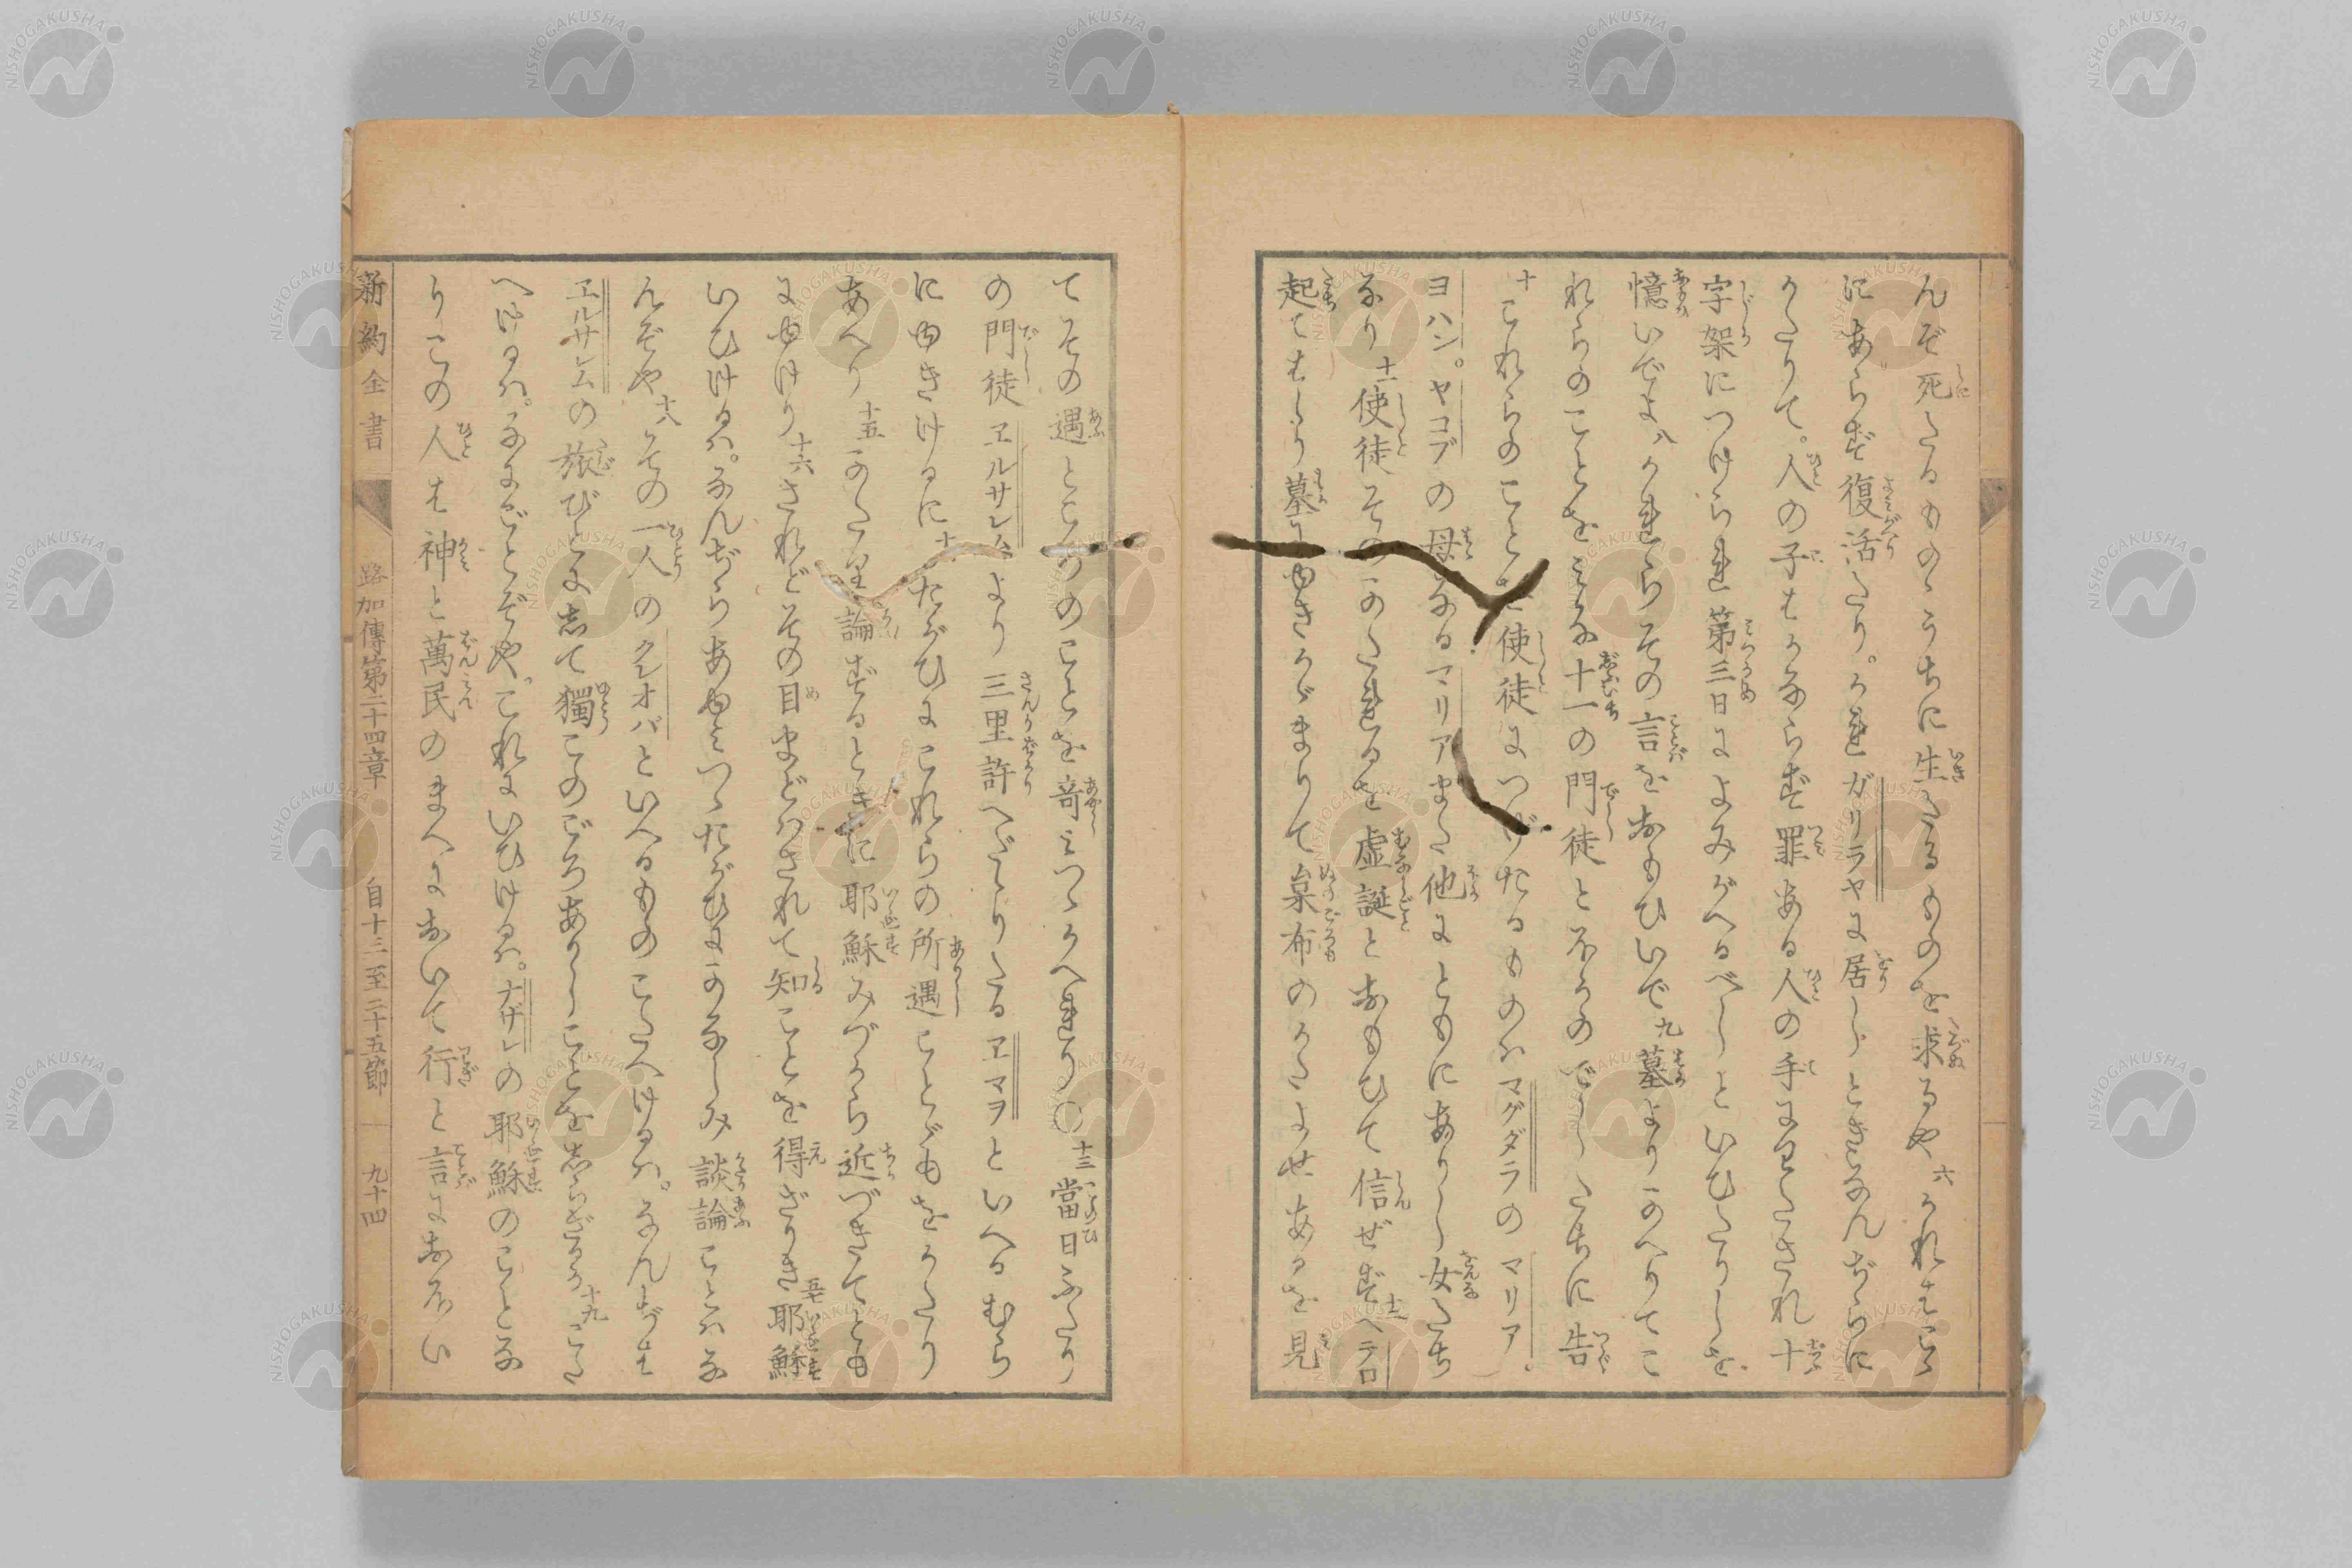 んぞ死たるものゝうちに生たるものを求るや六かれはこゝ
にあらず復活たり。かれガリラヤに居しときなんぢらに
かたりて。人の子はかならず罪ある人の手にわたされ十
字架につけられ第三日によみがへるべしといひたりしを
憶いでよ八かれらその言をおもひいで九墓よりかへりてこ
れらのことをみな十一の門徒とほかのでしたちに告
十これらのことを使徒につげたるものハマグダラのマリア。
ヨハン。ヤコブの母なるマリアまた他にともにありし女たち
なり十一使徒そのかたれるを虚誕とおもひて信ぜず十二ヘテロ
起てはしり墓にゆきかゞまりて枲布のかたよせあるを見
てその遇ところのことを奇みつゝかへれり〇十三當日ふたり
の門徒ヱルサレムより三里許へだゝりたるヱマヲといへるむら
にゆきけるに十四たがひにこれらの所遇ことどもをかたり
あへり十五かたり論ずるときに耶穌みづから近づきてとも
にゆけり十六されどその目まどハされて知ことを得ざりき十七耶穌
いひけるハ。なんぢらあゆみつゝたがひにかなしみ談論ことハな
んぞや十八その一人のクレオバといへるものこたへけるハ。なんぢは
ヱルサレムの旅びとにして獨このごろありしことをしらざるか十九こた
へけるハ。なにごとぞや。これにいひけるハ。ナザレの耶穌のことな
りこの人は神と萬民のまへにおいて行と言におほい
新約全書 路加傳第二十四章 自十三至二十五節 九十四
NISHOGAKUSHA